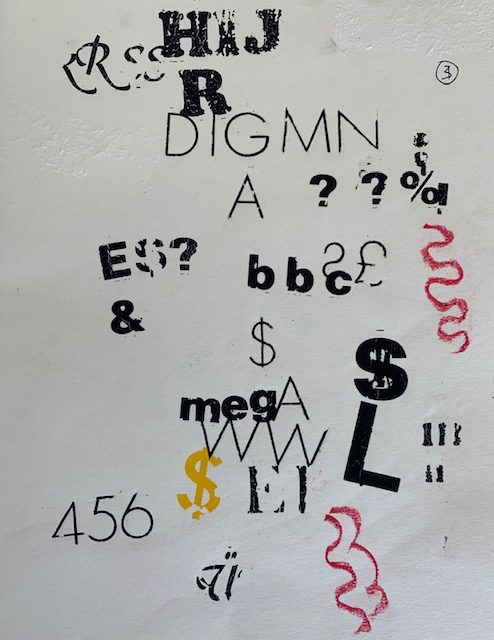 RSS HIJ
R
3
DIGMN
A ? ? %
ES? bbc ?£
&
$
$
megA
L
WW
$ EI
456